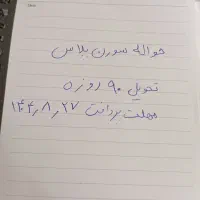 حواله مدرن پلاس
تحویل ۹۰ روزه
مهلت پرداخت ۱۴۰۴٫۸٫۲۷